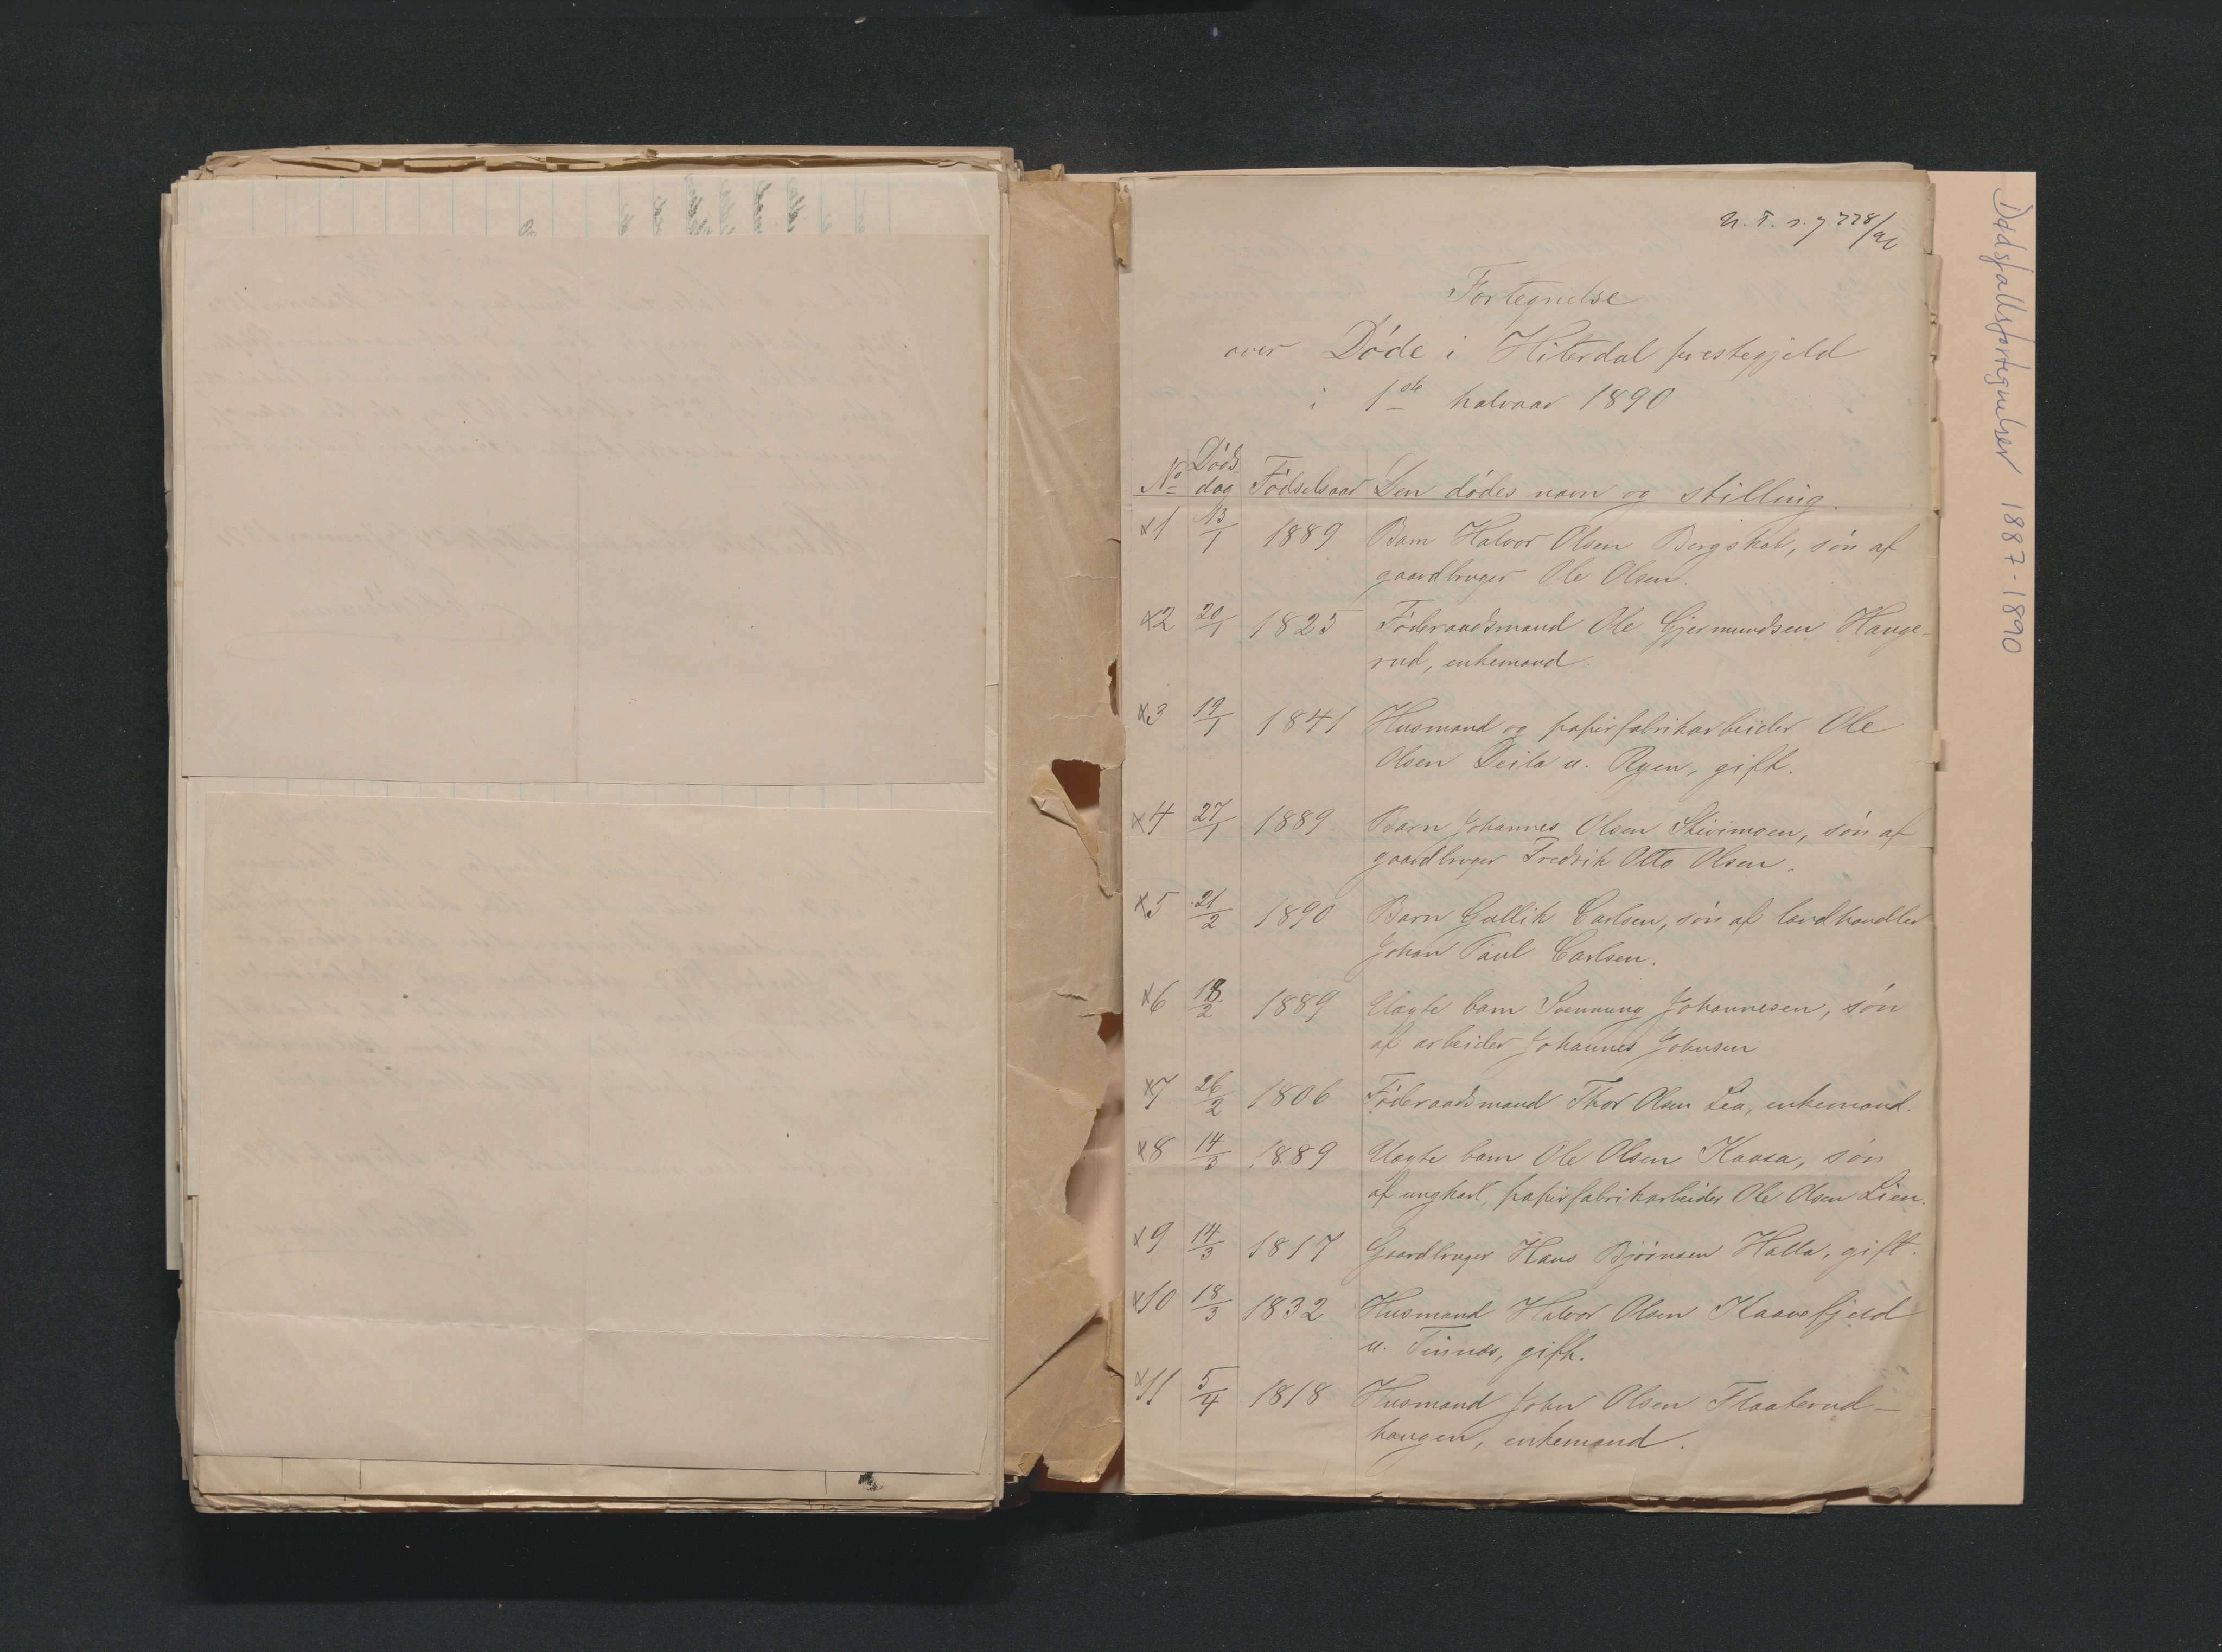 N. T. s. 7 778/90
Fortegnelse
over Døde i Hiterdal prestegjeld
i 1ste halvaar 1890
No Døds dag Fødselsaar Den dødes navn og stilling.
x1 13/1 1889 Barn Halvor Olsen Bergskot, søn af
gaardbruger Ole Olsen.
x2 20/1 1825 Føderaadsmand Ole Gjermundsen Hauge-
rud, enkemand.
x3 19/1 1841 Husmand og papirfabrikarbeider Ole
Olsen Deila u. Ryen, gift.
x4 27/1 1889 Barn Johannes Olsen Skivimoen, søn af
gaardbruger Fredrik Otto Olsen.
x5 21/2 1890 Barn Gullik Carlsen, søn af landhandler
Johan Paul Carlsen.
x6 18/2 1889 Uægte barn Svennung Johannesen, søn
af arbeider Johannes Johnsen
x7 26/2 1806 Føderaadsmand Thor Olsen Lia, enkemand.
x8 14/3 1889 Uægte barn Ole Olsen Kaasa, søn
af ungkarl, papirfabrikarbeider Ole Olsen Lien.
x9 14/3 1817 Gaardbruger Hans Bjørnsen Halla, gift.
x10 18/3 1832 Husmand Halvor Olsen Kaavefjeld
u. Tinnæs, gift.
x11 5/4 1818 Husmand John Olsen Flaaterud-
haugen, enkemand.
Dødsfallsfortegnelser 1887-1890